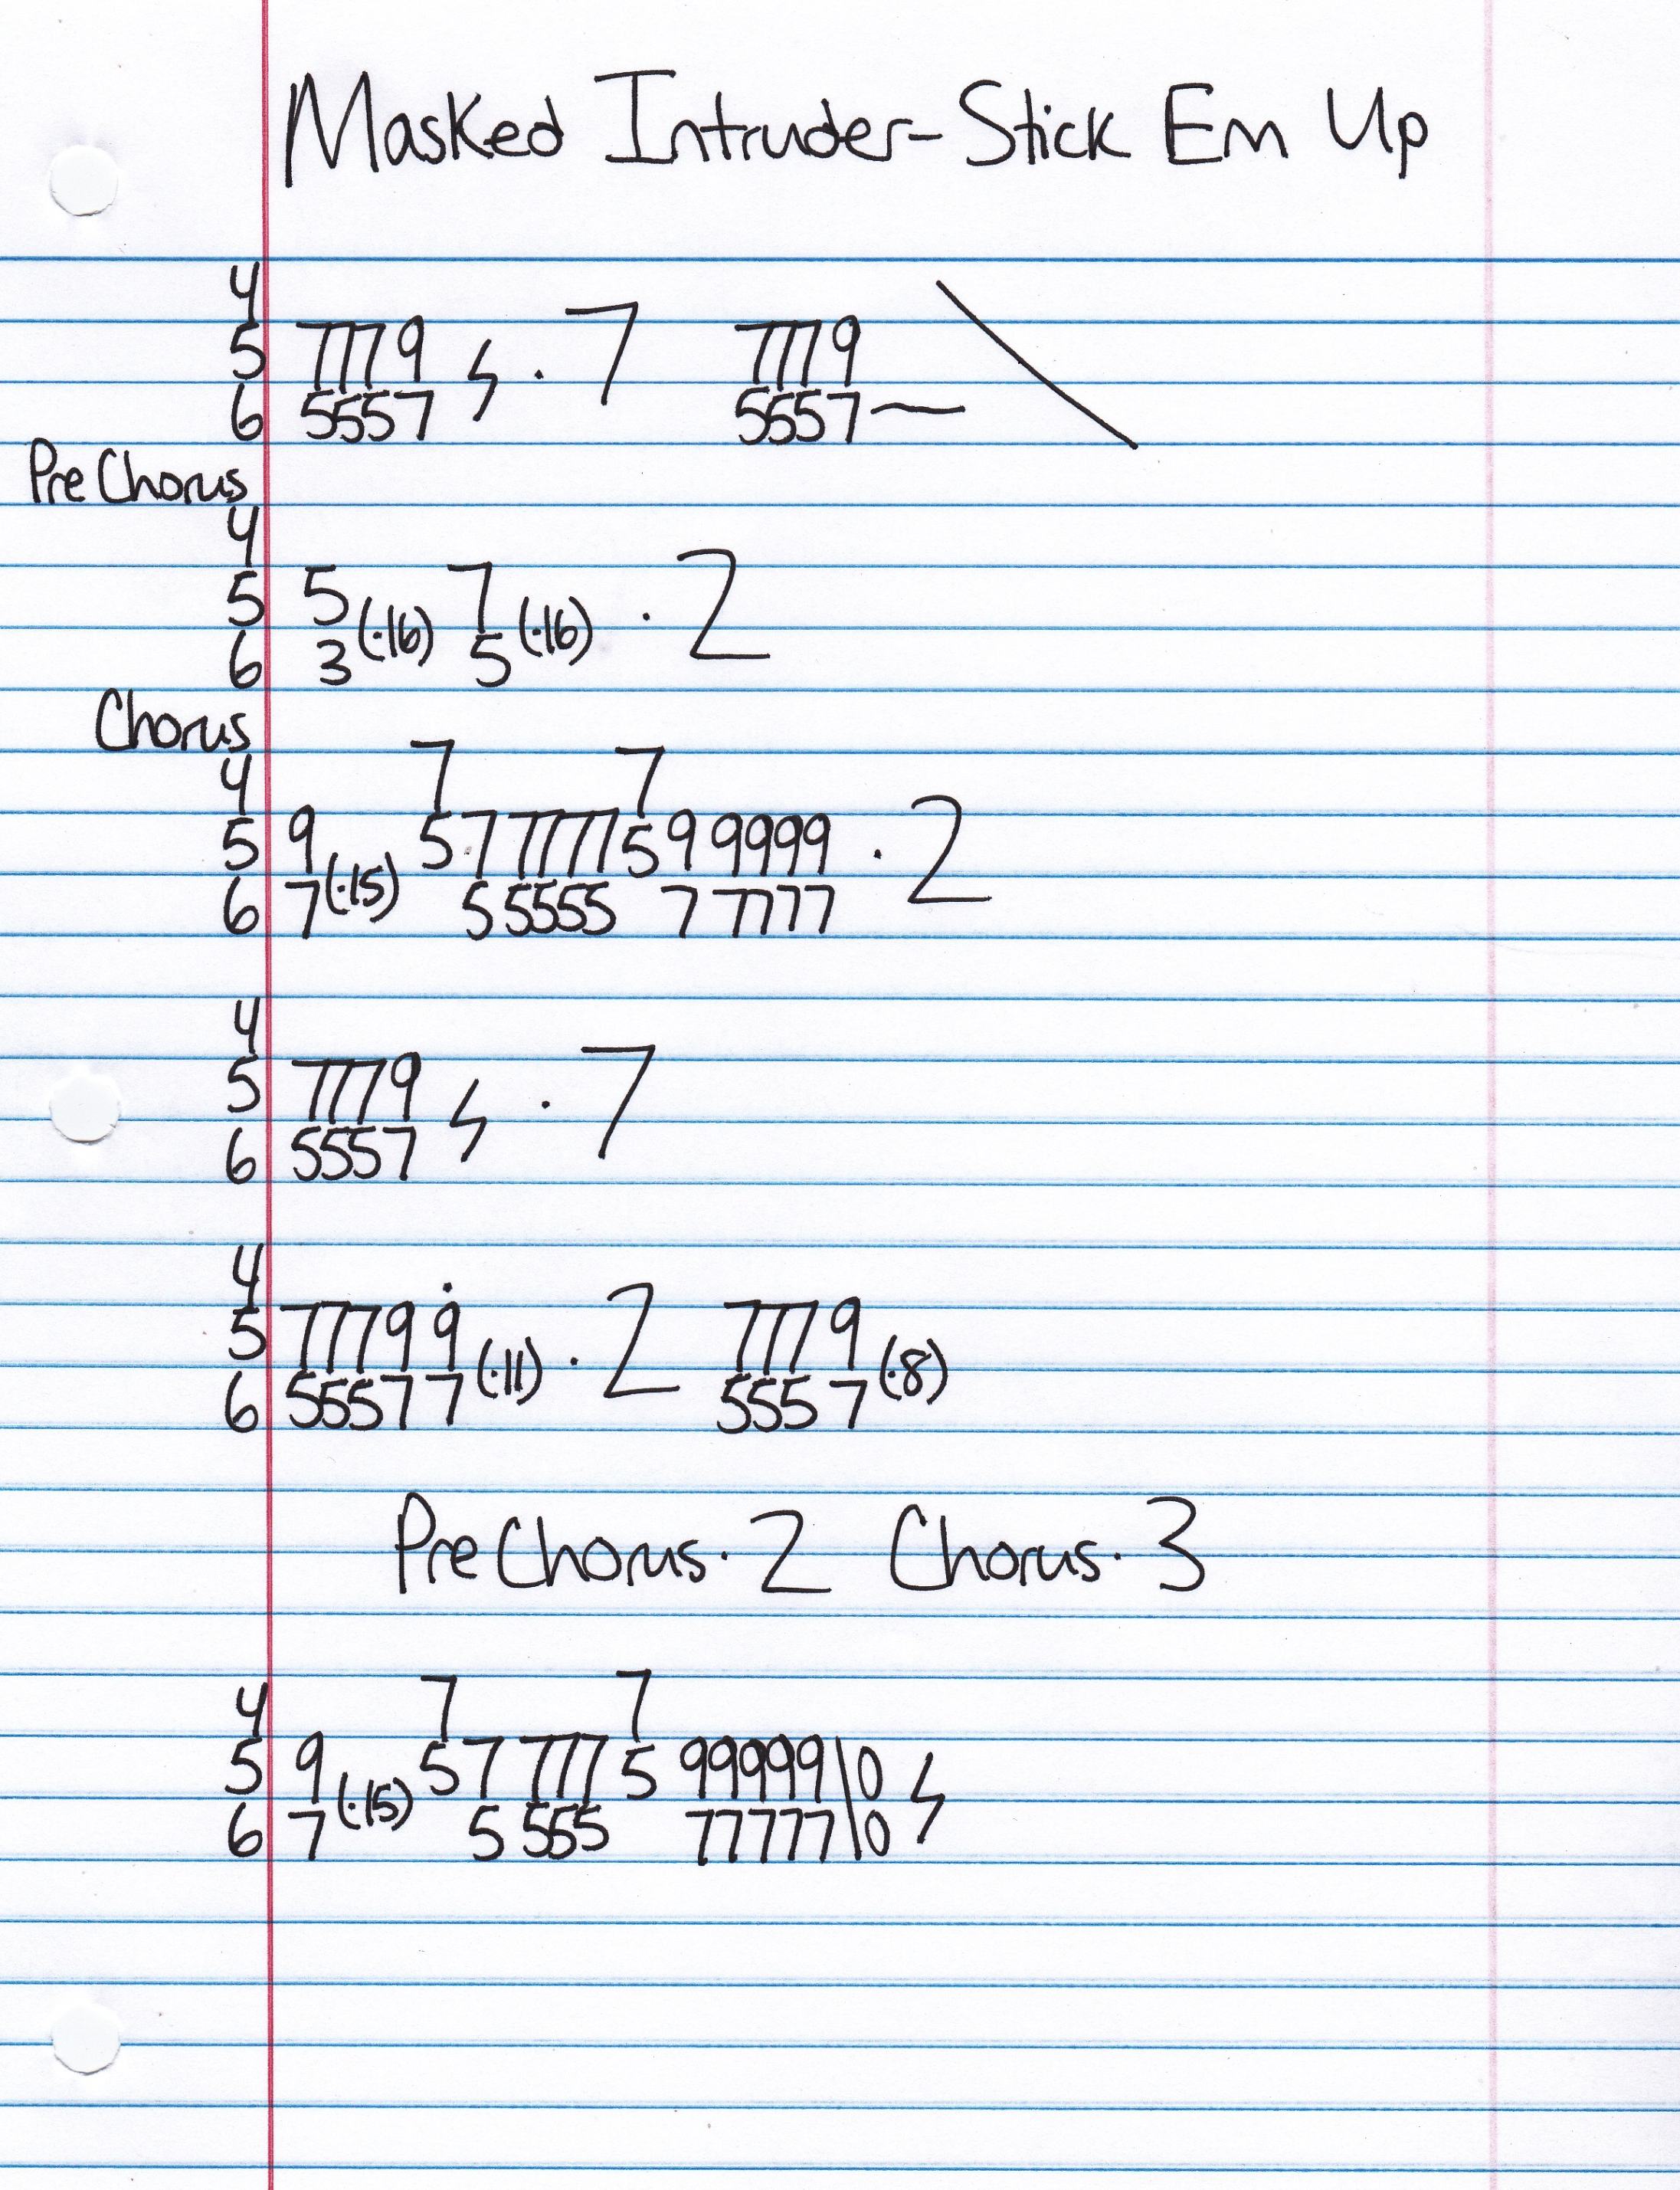 Masked Intruder - Stick Em Up
4
5 7779 ϟ · 7 7779
6 5557 5557—
Pre Chorus
4
5 5 (·16) 7 (·16) · 2
6 3 5
Chorus
4 7 7
5 9 (·15) 5 7 7777 5 9 9999 · 2
6 7 5 5555 7 7777
4
5 7779 ϟ · 7
6 5557
4
5 7779 9 (·11) · 2 7779 (·8)
6 5557 7 5557
Pre Chorus · 2 Chorus · 3
4 7 7
5 9 (·15) 5 7 777 5 99999\0 ϟ
6 7 5 555 77777\0